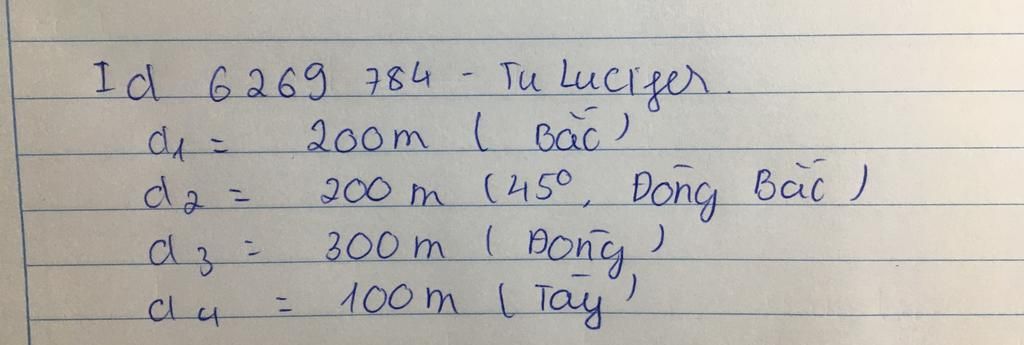 Id 6269 784 - Tu Lucifer.
d1 = 200m ( Bắc )
d2 = 200 m (45°, Đông Bắc )
d3 = 300m ( Đông )
d4 = 100m ( Tây )